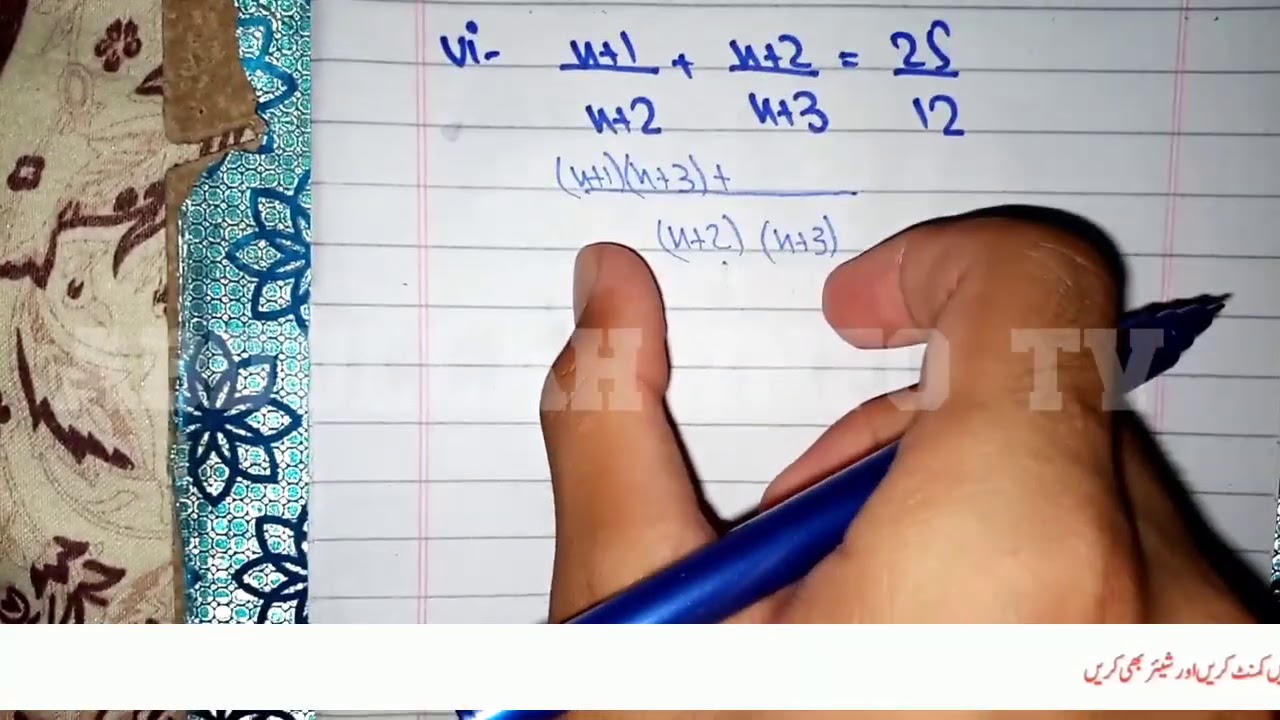 vi- n+1/n+2 + n+2/n+3 = 25/12
(n+1)(n+3)+
(n+2) (n+3)
TV
کمنٹ کریں اور شیئر بھی کریں